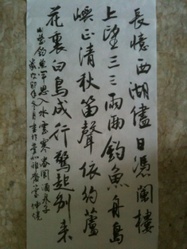 長憶西湖儘日憑闌樓
上望三三兩兩釣魚舟島
嶼正清秋笛聲依約蘆
花裏白鳥成行驚起別來
釣魚竿思入水雲寒